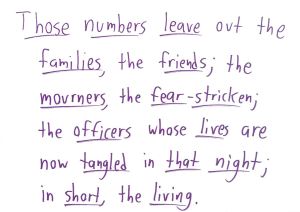 Those numbers leave out the
families, the friends; the
mourners, the fear-stricken;
the officers whose lives are
now tangled in that night;
in short, the living.